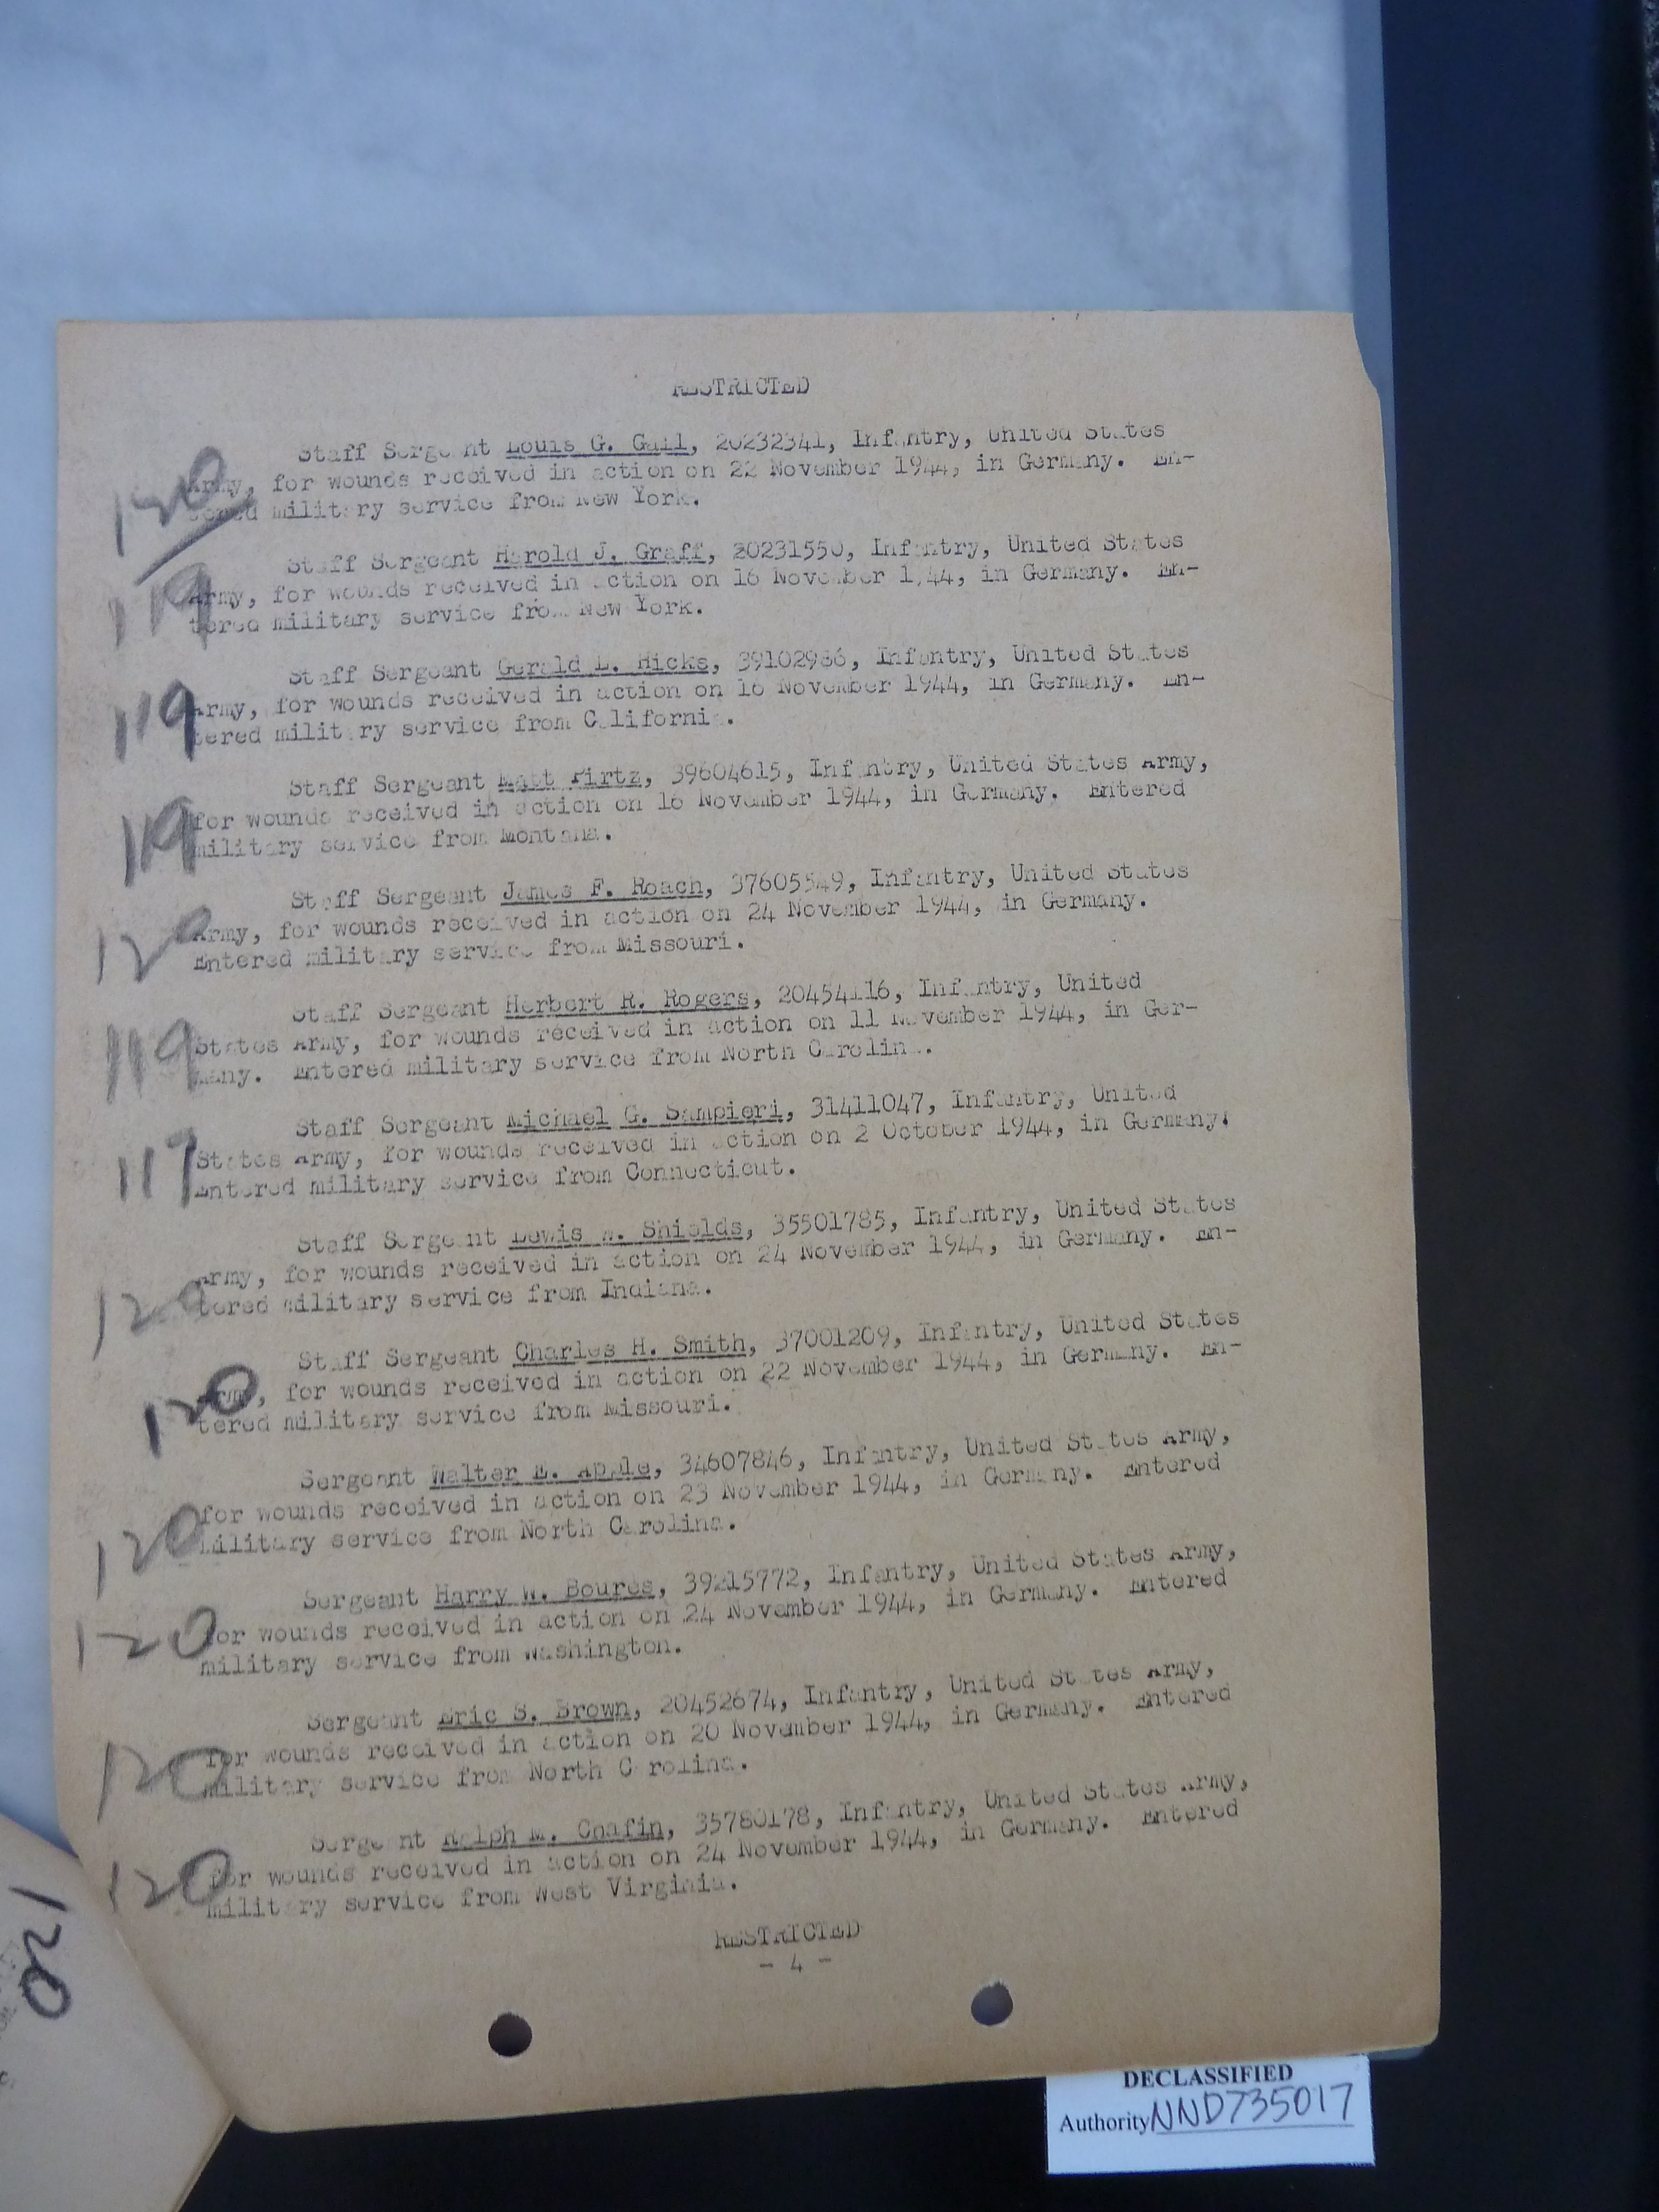 RESTRICTED
Staff Sergeant Louis G. Gall, 20232341, Infantry, United States
120 Army, for wounds received in action on 22 November 1944, in Germany. En-
tered military service from New York.
Staff Sergeant Harold J. Graff, 20231550, Infantry, United States
119 Army, for wounds received in action on 16 November 1944, in Germany. En-
tered military service from New York.
Staff Sergeant Gerald L. Hicks, 39102986, Infantry, United States
119 Army, for wounds received in action on 16 November 1944, in Germany. En-
tered military service from California.
Staff Sergeant Matt Pirtz, 39604615, Infantry, United States Army,
119 for wounds received in action on 16 November 1944, in Germany. Entered
military service from Montana.
Staff Sergeant James F. Roach, 37605549, Infantry, United States
120 Army, for wounds received in action on 24 November 1944, in Germany.
Entered military service from Missouri.
Staff Sergeant Herbert R. Rogers, 20454116, Infantry, United
119 States Army, for wounds received in action on 11 November 1944, in Ger-
many. Entered military service from North Carolina.
Staff Sergeant Michael G. Sampieri, 31411047, Infantry, United
117 States Army, for wounds received in action on 2 October 1944, in Germany.
Entered military service from Connecticut.
Staff Sergeant Lewis W. Shields, 35501785, Infantry, United States
120 Army, for wounds received in action on 24 November 1944, in Germany. En-
tered military service from Indiana.
Staff Sergeant Charles H. Smith, 37001209, Infantry, United States
120 Army, for wounds received in action on 22 November 1944, in Germany. En-
tered military service from Missouri.
Sergeant Walter E. Apple, 34607846, Infantry, United States Army,
120 for wounds received in action on 23 November 1944, in Germany. Entered
military service from North Carolina.
Sergeant Harry W. Boures, 39215772, Infantry, United States Army,
120 for wounds received in action on 24 November 1944, in Germany. Entered
military service from Washington.
Sergeant Eric S. Brown, 20452674, Infantry, United States Army,
120 for wounds received in action on 20 November 1944, in Germany. Entered
military service from North Carolina.
Sergeant Ralph M. Chafin, 35780178, Infantry, United States Army,
120 for wounds received in action on 24 November 1944, in Germany. Entered
military service from West Virginia.
RESTRICTED
- 4 -
120
DECLASSIFIED
Authority NND735017